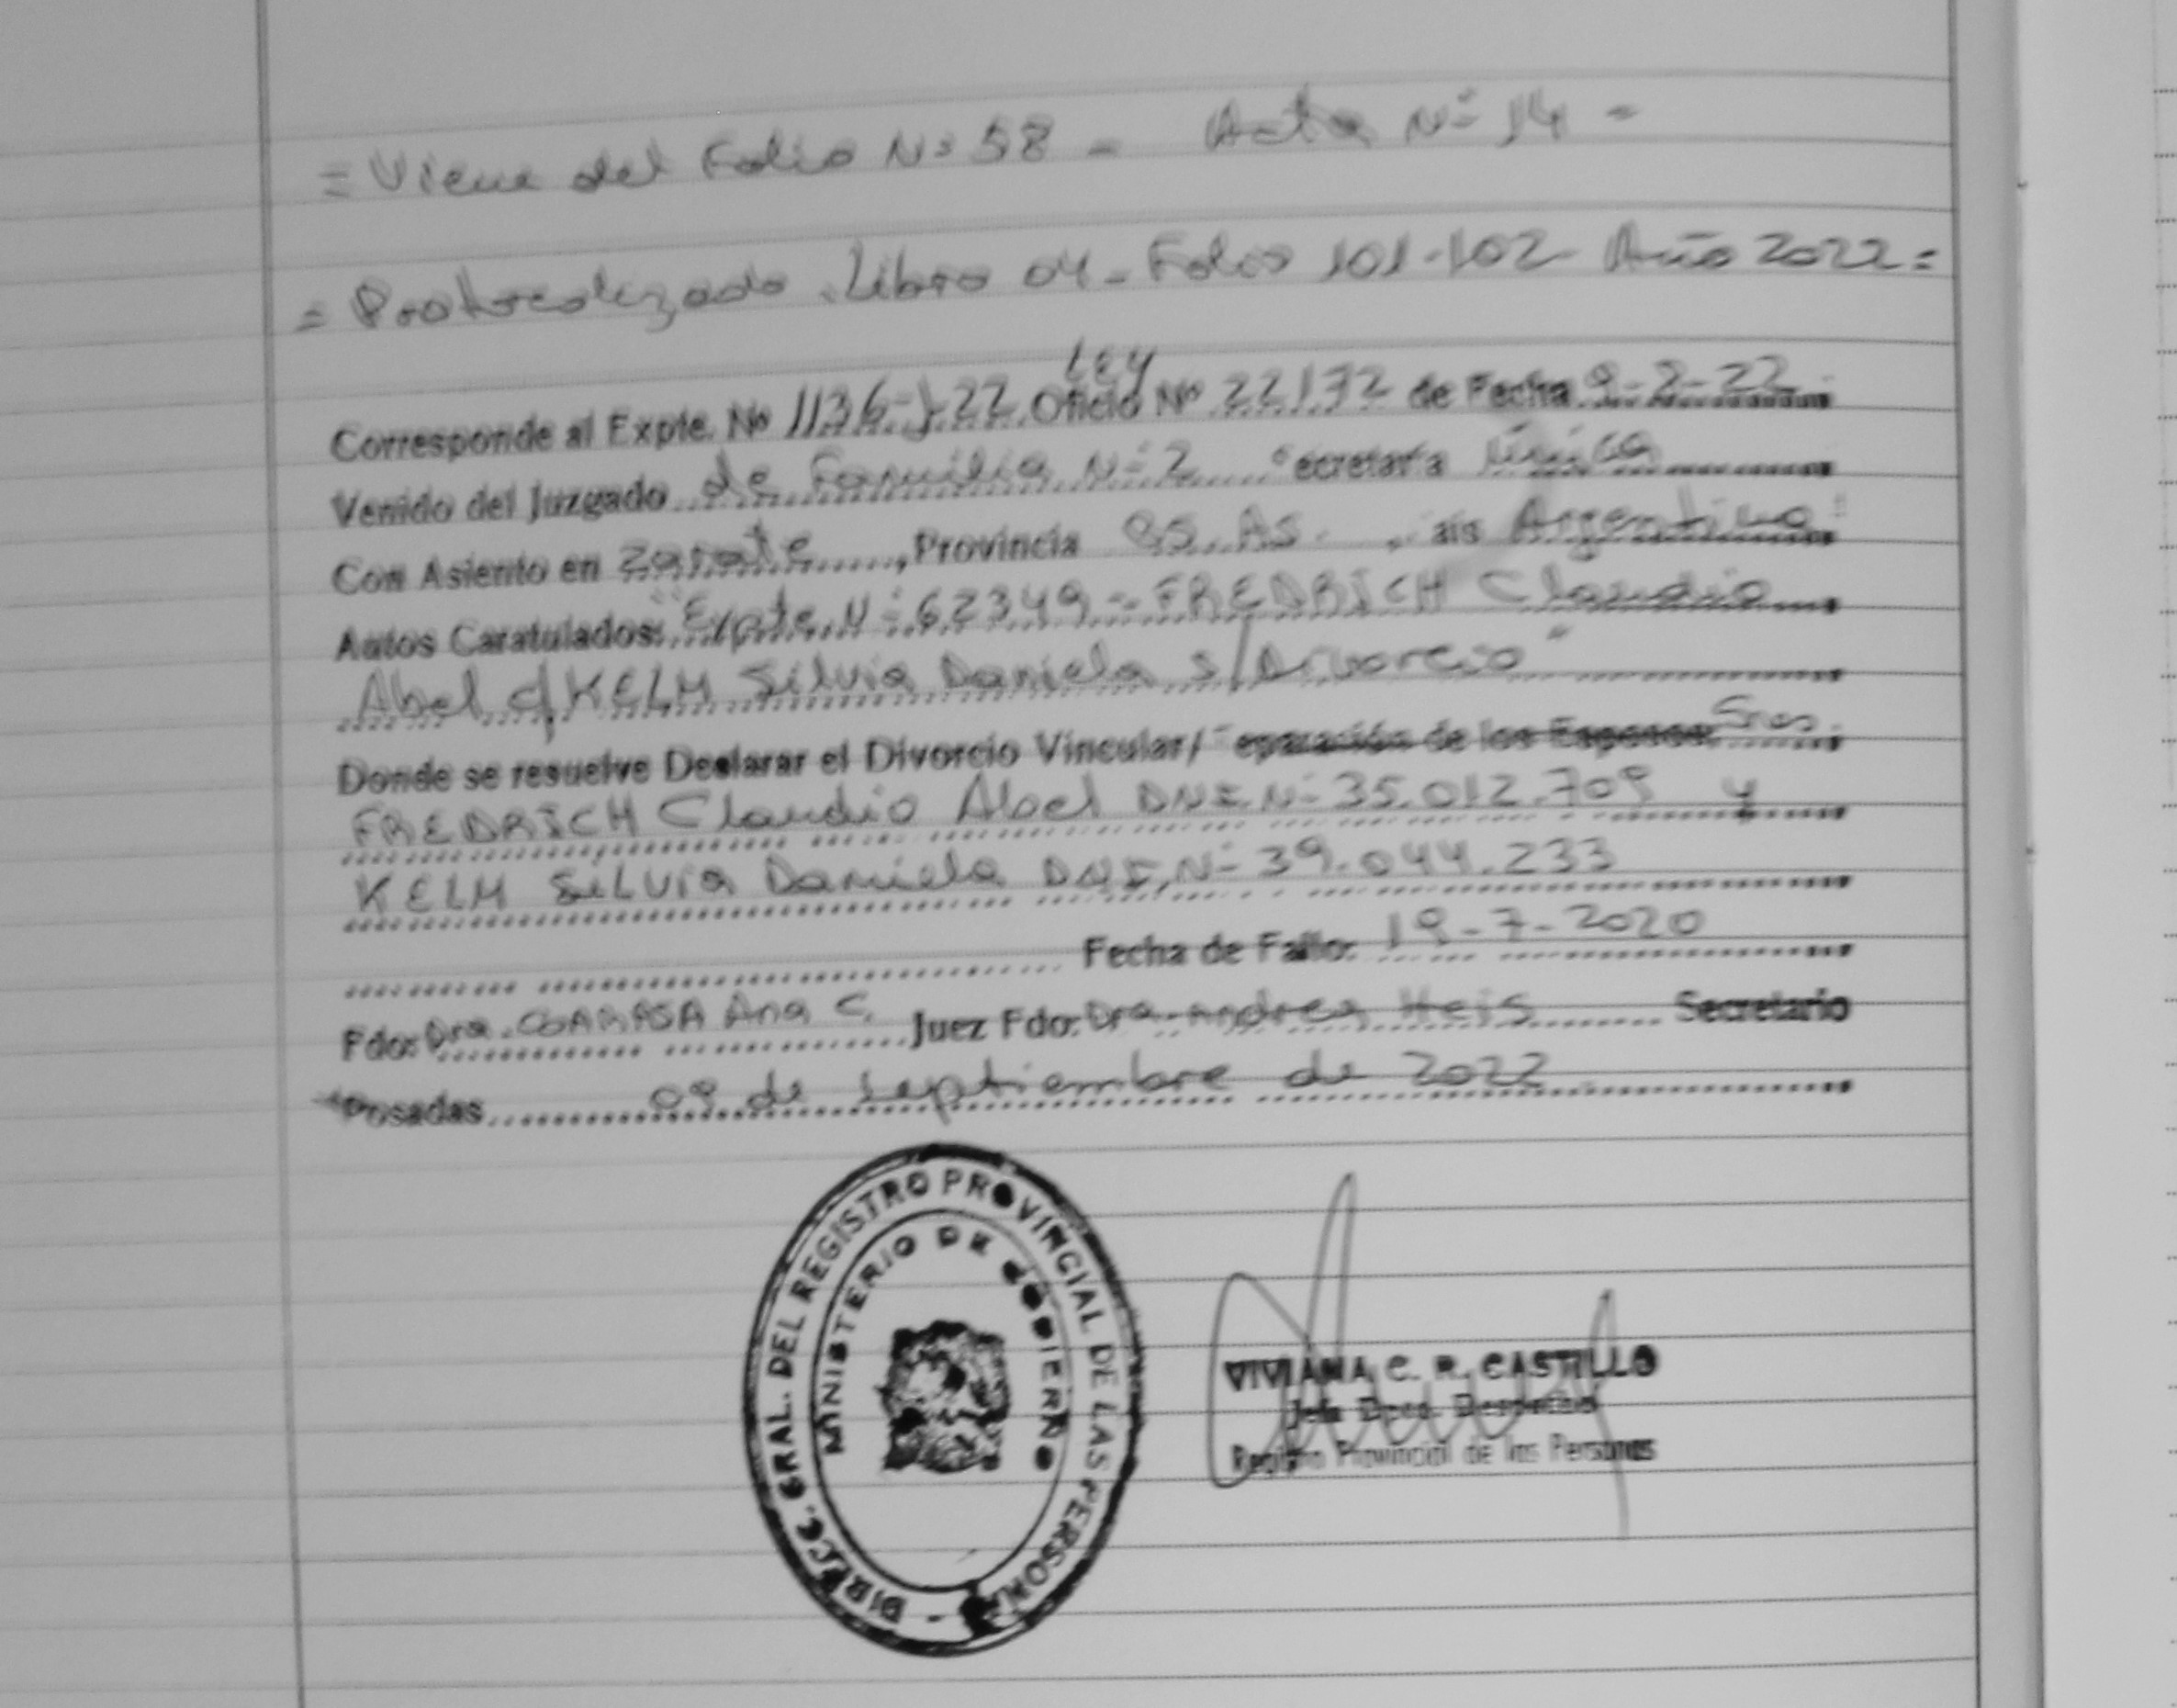 = Viene del Folio Nº 58 - Acta Nº 14 =
= Protocolizado. Libro 04 - Folio 101-102 - Año 2022 =
LEY
Corresponde al Expte. Nº 1136-J-22 Oficio Nº 22172 de Fecha 9-2-22
Venido del Juzgado de Familia Nº 2 ecretaría Única
Con Asiento en Zarate, Provincia Bs. As. , aís Argentina
Autos Caratulados: "Expte. Nº 62349 - FREDRICH Claudio
Abel c/ KELM Silvia Daniela s/ Divorcio"
Donde se resuelve Declarar el Divorcio Vincular/ eparación de los Esposos Sres.
FREDRICH Claudio Abel DNI. Nº 35.012.709 y
KELM SILVIA Daniela DNI. Nº 39.044.233
Fecha de Fallo: 19-7-2020
Fdo: Dra. Ana C. Juez Fdo: Dra. Andrea Secretario
Posadas 09 de septiembre de 2022
DIRECC. GRAL. DEL REGISTRO PROVINCIAL DE LAS PERSONAS
MINISTERIO DE GOBIERNO
VIVIANA C. R. CASTILLO
Jefa Dpto. Despacho
Registro Provincial de las Personas